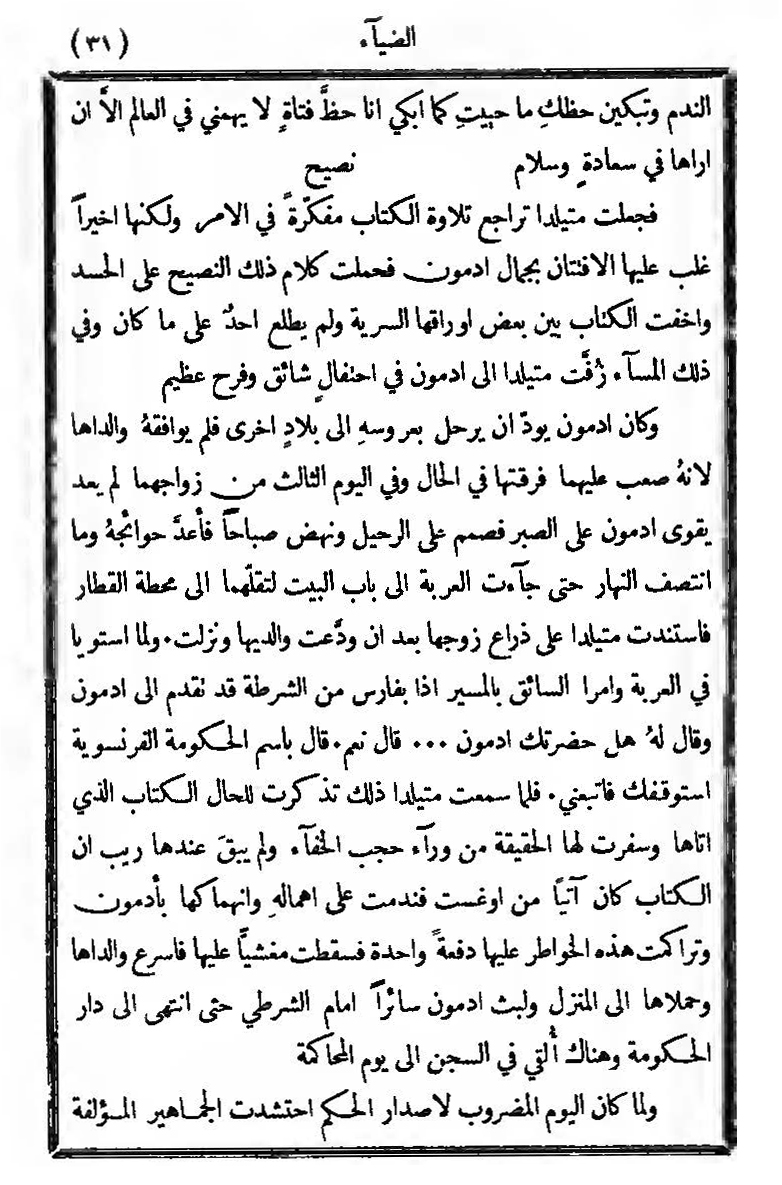 الضيآء
(٣١)
الندم وتبكين حظكِ ما حييتِ كما ابكي انا حظَّ فتاةٍ لا يهمني في العالم الاَّ ان
اراها في سعادةٍ وسلام نصيح
فجعلت متيلدا تراجع تلاوة الكتاب مفكّرةً في الامر ولكنها اخيراً
غلب عليها الافتتان بجمال ادمون فحملت كلام ذلك النصيح على الحسد
واخفت الكتاب بين بعض اوراقها السرية ولم يطلع احدٌ على ما كان وفي
ذلك المسآء زُفَّت متيلدا الى ادمون في احتفالٍ شائق وفرح عظيم
وكان ادمون يودّ ان يرحل بعروسهِ الى بلادٍ اخرى فلم يوافقهُ والداها
لانهُ صعب عليهما فرقتها في الحال وفي اليوم الثالث من زواجهما لم يعد
يقوى ادمون على الصبر فصمم على الرحيل ونهض صباحاً فأعدَّ حوائجهُ وما
انتصف النهار حتى جآءت العربة الى باب البيت لتقلّهما الى محطة القطار
فاستندت متيلدا على ذراع زوجها بعد ان ودَّعت والديها ونزلت. ولما استويا
في العربة وامرا السائق بالمسير اذا بفارس من الشرطة قد تقدم الى ادمون
وقال لهُ هل حضرتك ادمون ... قال نعم. قال باسم الحكومة الفرنسوية
استوقفك فاتبعني. فلما سمعت متيلدا ذلك تذكرت للحال الكتاب الذي
اتاها وسفرت لها الحقيقة من ورآء حجب الخفآء ولم يبقَ عندها ريب ان
الكتاب كان آتياً من اوغست فندمت على اهمالهِ وانهماكها بأدمون
وتراكمت هذه الخواطر عليها دفعةً واحدة فسقطت مغشيًّا عليها فاسرع والداها
وحملاها الى المنزل ولبث ادمون سائراً امام الشرطي حتى انتهى الى دار
الحكومة وهناك أُلقي في السجن الى يوم المحاكمة
ولما كان اليوم المضروب لاصدار الحكم احتشدت الجماهير المؤلفة